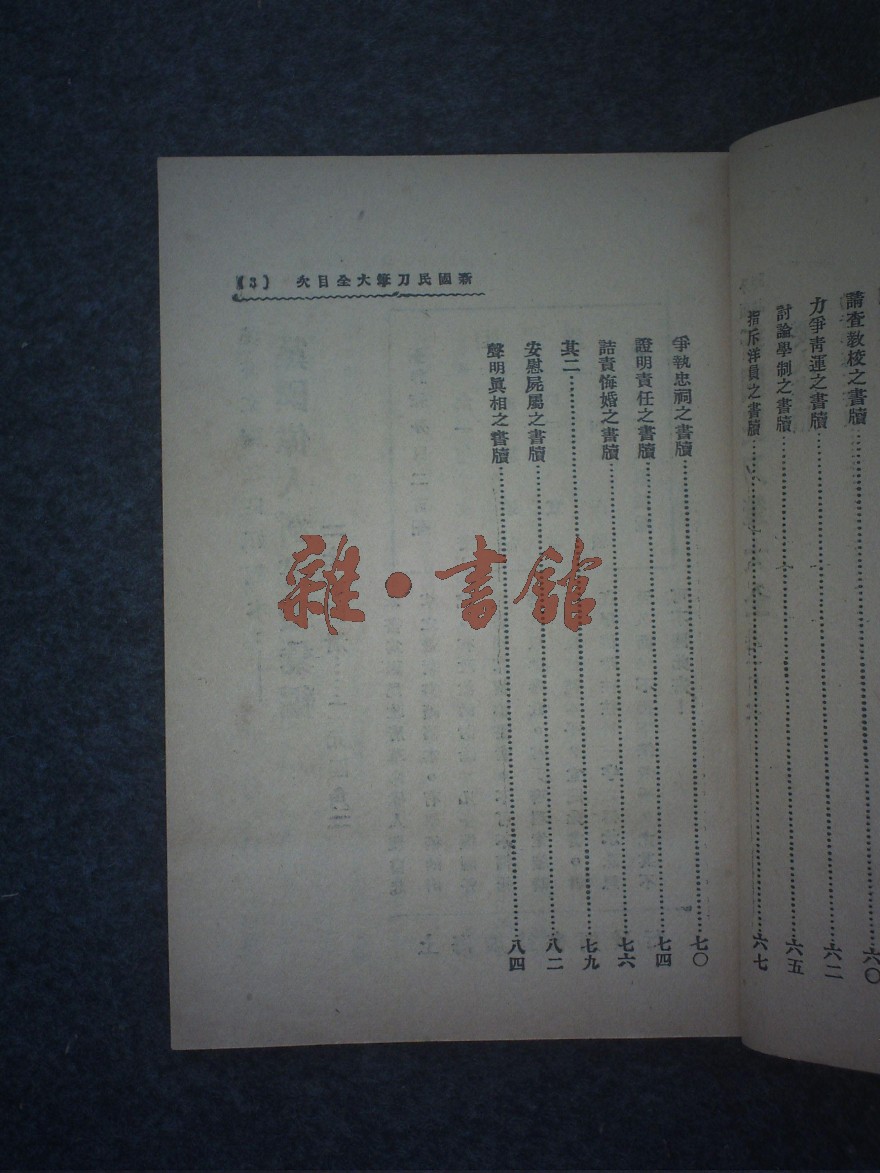 請查教校之書牘……六〇
力爭青運之書牘……六二
討論學制之書牘……六五
指斥洋員之書牘……六七
新國民刀筆大全目次 (3)
爭執忠祠之書牘……七〇
證明責任之書牘……七四
詰責悔婚之書牘……七六
其二……七九
安慰屍屬之書牘……八二
聲明眞相之書牘……八四
雜·書館